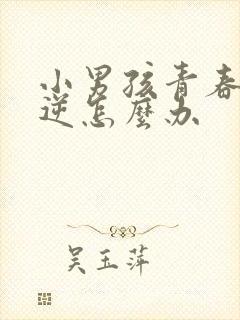 小男孩青春
逆怎麼办
吴玉萍